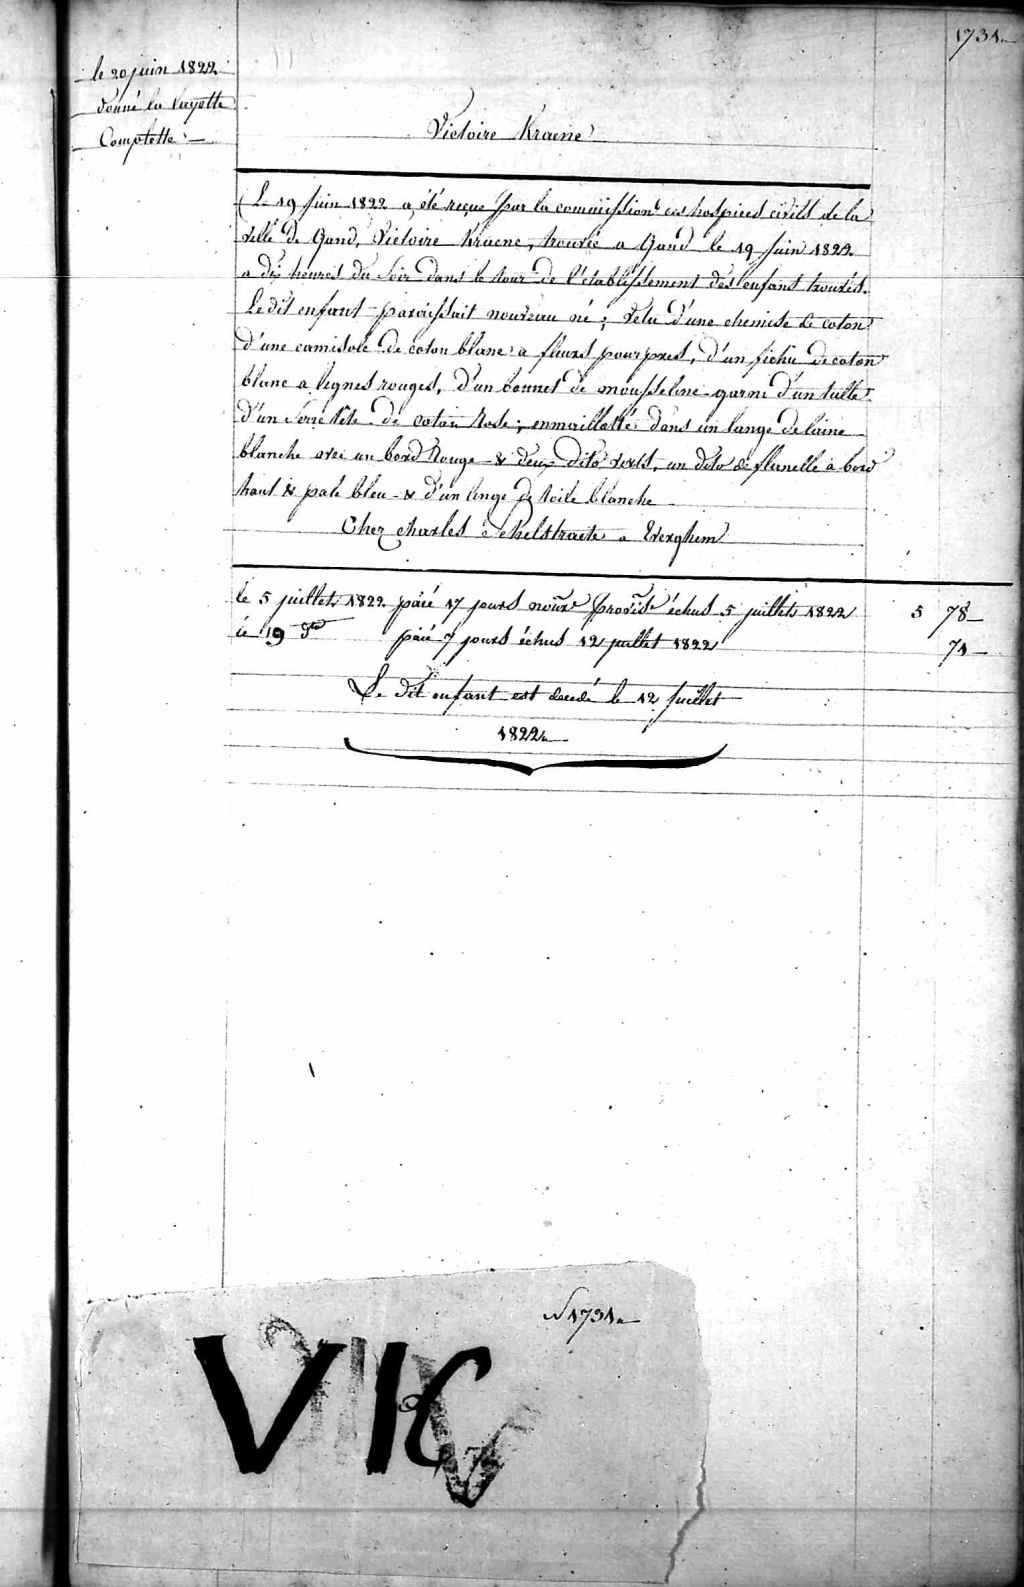 1731.
le 20 juin 1822
donné la Vayette
Complette
Victoire Kraene
Le 19 Juin 1822 a été reçue par la commission des hospices civils de la
ville de Gand, Victoire Kraene, trouvée a Gand le 19 Juin 1822
a dix heures du Soir dans le tour de l'établissement des enfant trouvés.
Ledit enfant paraissait nouveau né ; vetu d'une chemise de coton
d'une camisole de coton blanc a fleurs pourpres, d'un fichu de coton
blanc a lignes rouges, d'un bonnet de mousseline garni d'un tulle
d'un Serre tête de coton Rose ; enmaillotté dans un lange de laine
blanche avec un bord Rouge & deux dito verts, un dito de flanelle à bord
haut & pale bleu & d'un linge de toile blanche
Chez Charles à Everghem
le 5 juillet 1822 paié 17 jours nourre provise échus 5 juillet 1822 5 78
le 19 do paié 7 jours échus 12 juillet 1822 71
Le dit enfant est decedé le 12 Juillet
1822
N 1731
VIC